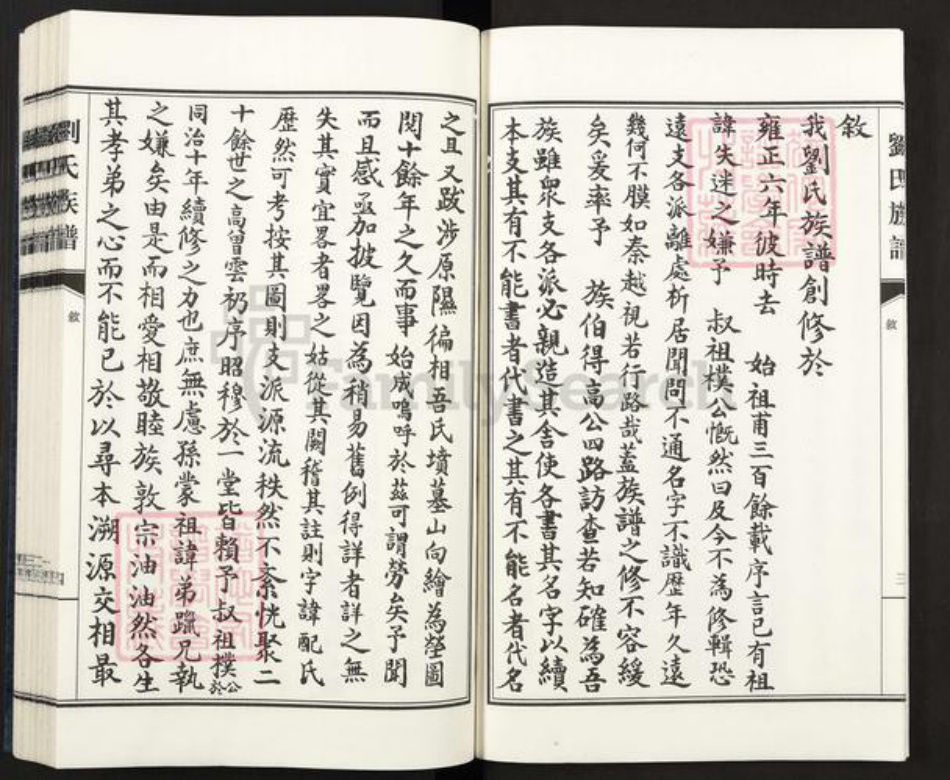 劉氏族譜
敘
敘
我劉氏族譜創修於
雍正六年彼時去 始祖甫三百餘載序言已有祖
諱失迷之嫌予 叔祖樸公慨然曰及今不為修輯恐
遠支各派離處析居聞問不通名字不識歷年久遠
幾何不膜如秦越視若行路哉蓋族譜之修不容緩
矣爰率予 族伯得高公四路訪查若知確為吾
族雖眾支各派必親造其舍使各書其名字以續
本支其有不能書者代書之其有不能名者代名
之且又跋涉原隰徧相吾氏墳墓山向繪為塋圖
閱十餘年之久而事 始成嗚呼於茲可謂勞矣予聞
而且感亟加披覽因為稍易舊例得詳者詳之無
失其實宜畧者畧之姑從其闕稽其註則字諱配氏
歷然可考按其圖則支派源流秩然不紊恍聚二
十餘世之高曾雲礽序昭穆於一堂皆賴予叔祖樸公於
同治十年續修之力也庶無慮孫蒙祖諱弟躐兄執
之嫌矣由是而相愛相敬睦族敦宗油油然各生
其孝弟之心而不能已於以尋本溯源交相最
劉氏族譜
敘
FamilySearch